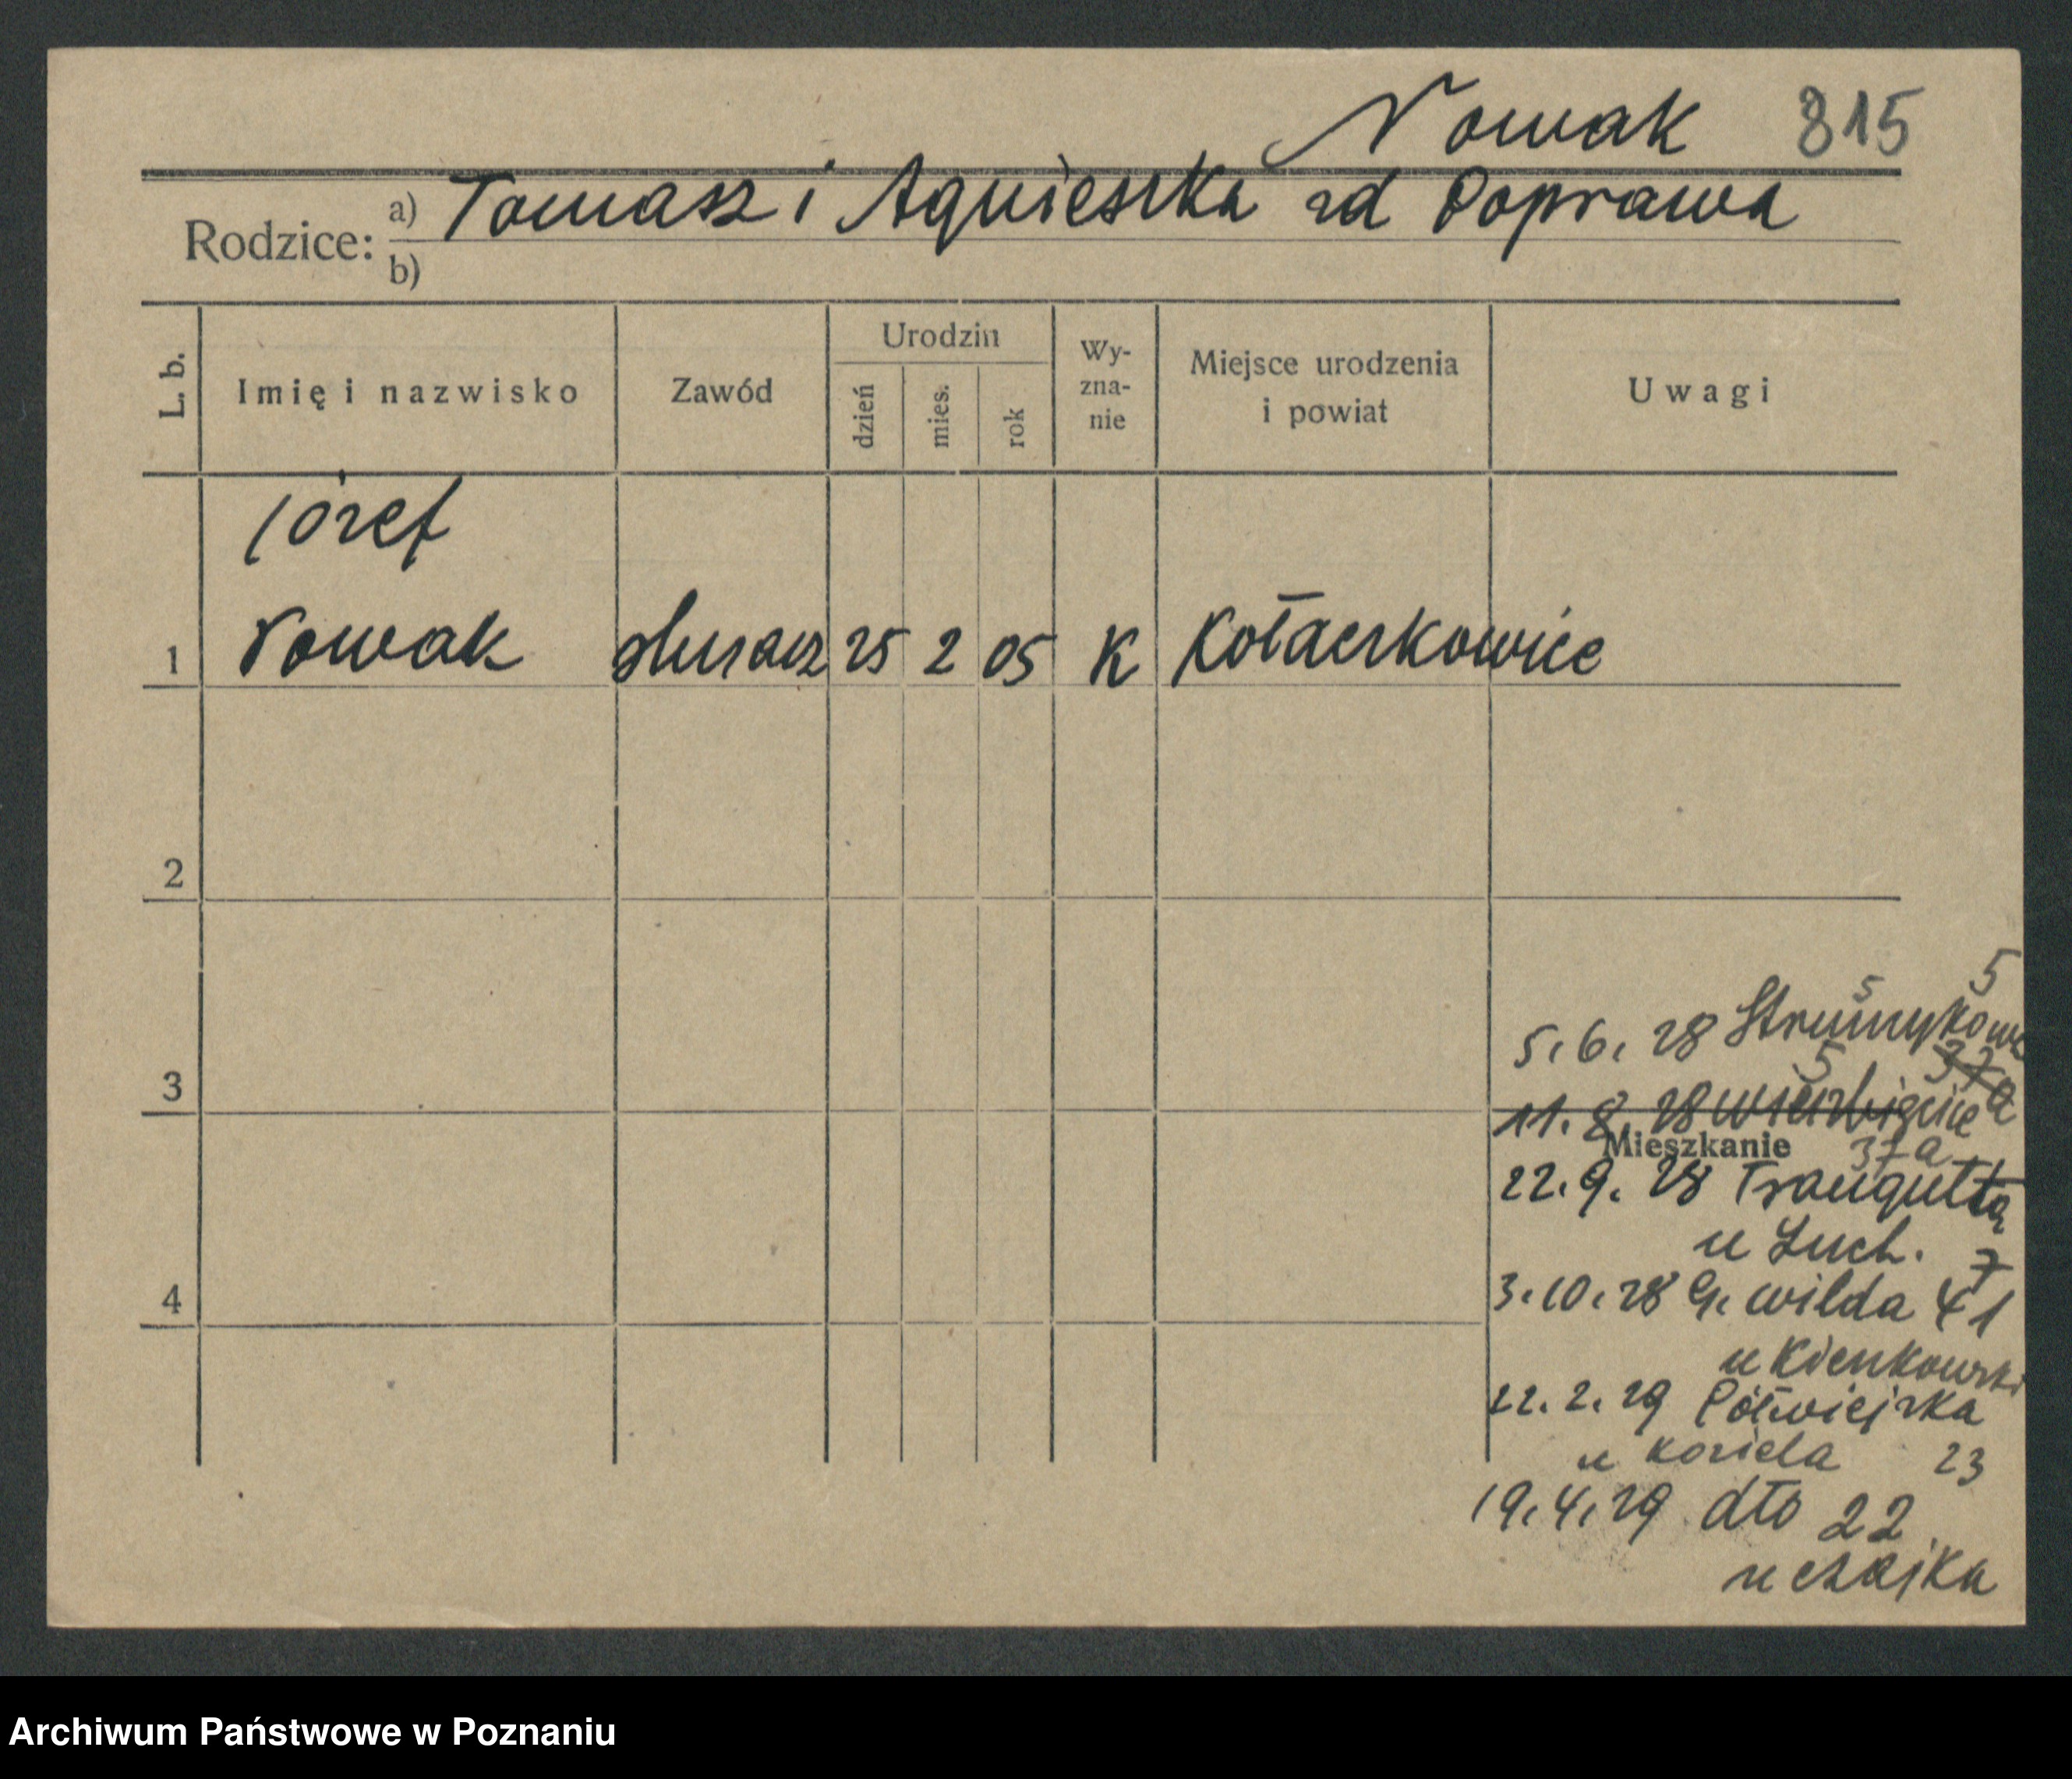 Nowak 815
Rodzice: a) Tomasz i Agnieszka zd Poprawa
b)
L. b. Imię i nazwisko Zawód Urodzin dzień mies. rok Wy-zna-nie Miejsce urodzenia i powiat Uwagi
Józef
1 Nowak ślusarz 25 2 05 K Kołaczkowice
2
3
4
5
5
5.6.28 Strumykowa
5 37a
11.8.28 Wierzbięcice
Mieszkanie 37a
22.9.28 Traugutta
u Luch. 7
3.10.28 G. Wilda 41
u Kienkowski
22.2.29 Półwiejska
u Koziela 23
19.4.29 dto 22
u Czajka
Archiwum Państwowe w Poznaniu